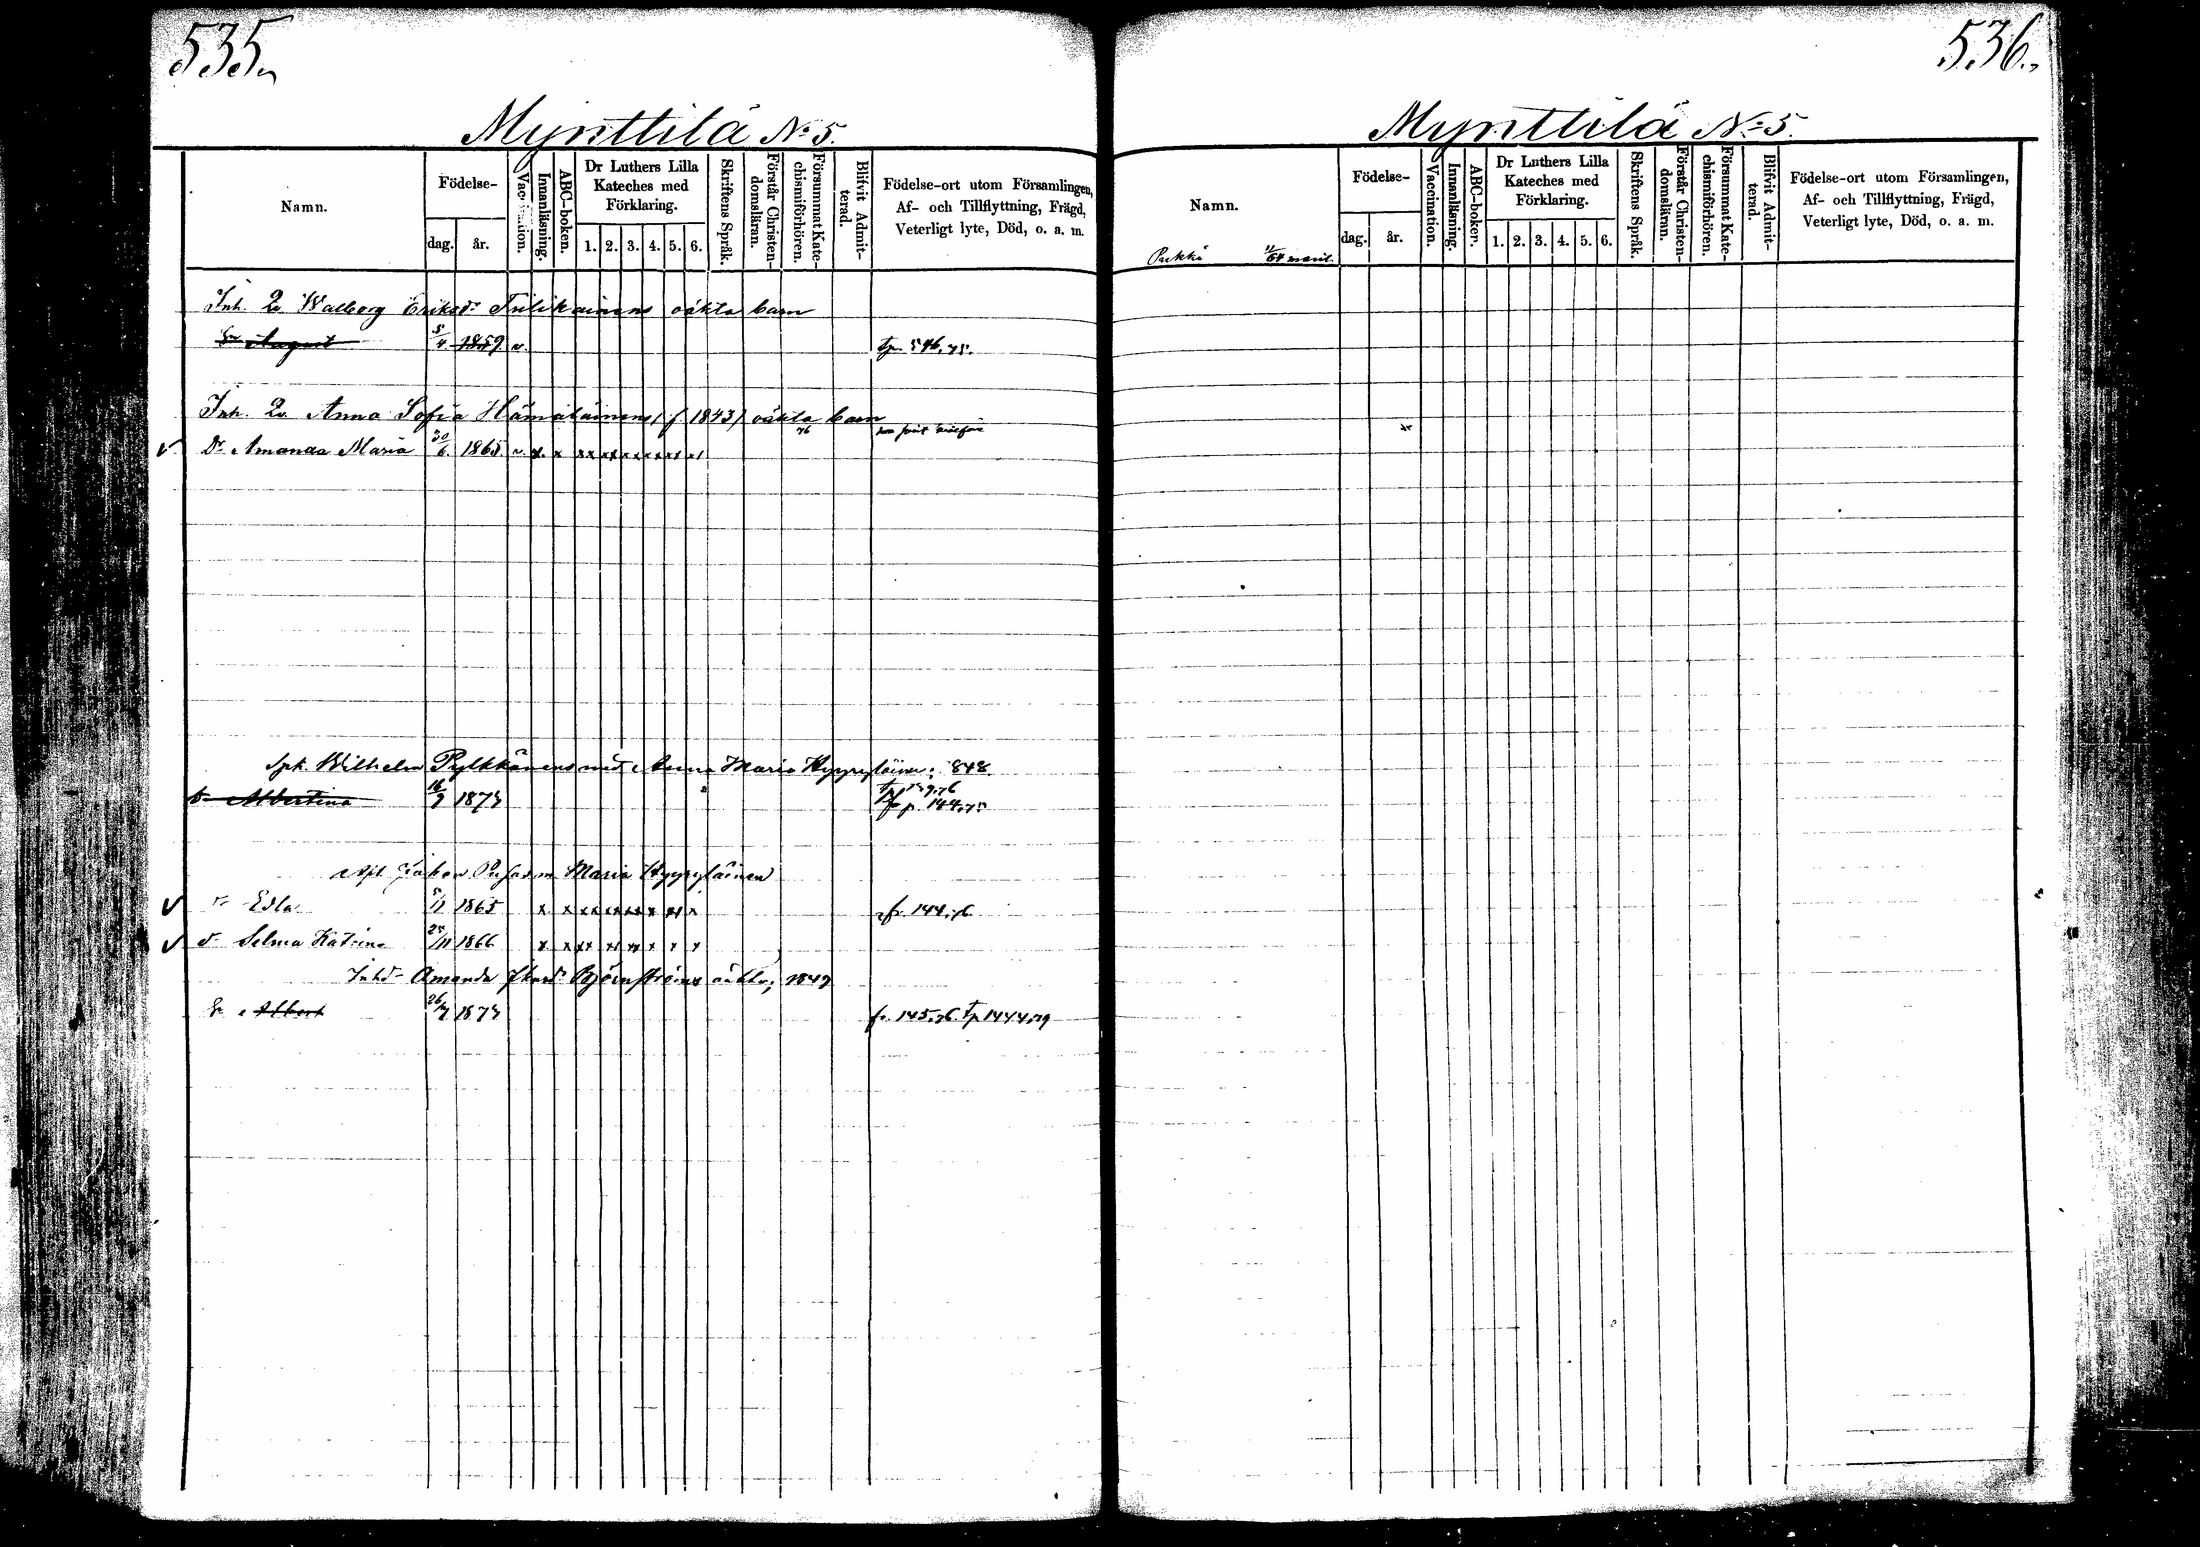 535.
Mynttilä No 5.
Namn.
Födelse-
dag. år.
Vaccination.
Innanläsning.
ABC-boken.
Dr Luthers Lilla
Kateches med
Förklaring.
1. 2. 3. 4. 5. 6.
Skriftens Språk.
Förstår Christen-
domsläran.
Försummat Kate-
chismiförhören.
Blifvit Admit-
terad.
Födelse-ort utom Församlingen,
Af- och Tillflyttning, Frägd,
Veterligt lyte, Död, o. a. m.
Inh. Q. Walborg Eriksdr Tulikainens oäkta barn
Sr August 5/4 1859 v. tp. 546.75.
Inh. Q. Anna Sofia Hämäläinens (f. 1843) oäkta barn
76
Dr Amanda Maria 30/6 1865 v. x x xx xx xx xx xx x1
Wilhelm Pylkkänens Anna Maria Hyyryläinen
Albertina 16/9 1874
fr p. 144.75
Maria Hyyryläinen
Edla 5/1 1865 fr. 144.76
d. Selma Katrina 24/11 1866
Amanda Björnströms oäkta, 1849
Albert 26/7 1874 fr. 145.76. tp 1444.79
536.
Mynttilä No 5.
Namn.
Pukki 11/64
Födelse-
dag. år.
Vaccination.
Innanläsning.
ABC-boken.
Dr Luthers Lilla
Kateches med
Förklaring.
1. 2. 3. 4. 5. 6.
Skriftens Språk.
Förstår Christen-
domslärann.
Försummat Kate-
chismiförhören.
Blifvit Admit-
terad.
Födelse-ort utom Församlingen,
Af- och Tillflyttning, Frägd,
Veterligt lyte, Död, o. a. m.